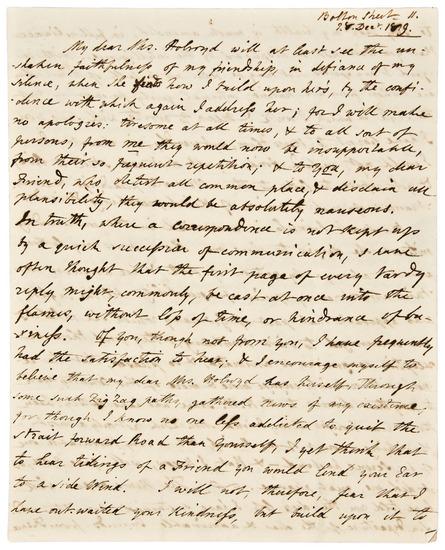 Bolton Street 11.
Decr. 1819.
My dear Mrs. Holroyd will at least see the un-
shaken faithfulness of my friendship, in defiance of my
silence, when she finds how I build upon hers, by the confi-
dence with which again I address her; for I will make
no apologies: tiresome at all times, & to all sort of
persons, from me they would now be insupportable,
from their so frequent repetition; & to You, my dear
Friend, who detest all common place, & disclaim all
plausibility, they would be absolutely nauseous.
In truth, where a correspondence is not kept up
by a quick succession of communication, I have
often thought that the first page of every tardy
reply might, commonly, be cast at once into the
flames, without loss of time, or hindrance of bu-
siness. Of You, though not from you, I have frequently
had the satisfaction to hear; & I encourage myself to
believe that my dear Mrs. Holroyd has herself, through
some such zig zag paths, gathered news of my existence,
for though I know no one less addicted to quit the
strait forward Road than Yourself, I yet think that
to hear tidings of a Friend you would lend your Ear
to a side Wind. I will not, therefore, fear that I
have out-waited your Kindness, but build upon it to